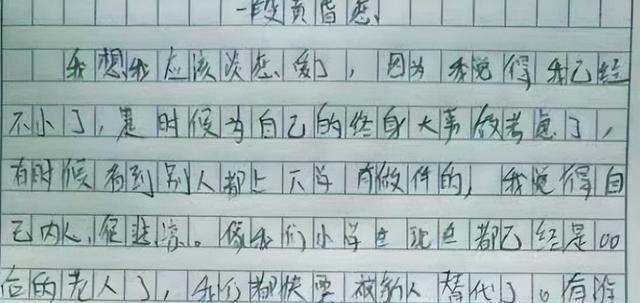 一段黄昏恋
我想我应该谈恋爱了，因为我觉得我已经
不小了，是时候为自己的终身大事做考虑了，
有时候看到别人都上下学有做伴的，我觉得自
己内心很悲凉。像我们小学生现在都已经是00
后的老人了，我们都快要被新人替代了。有谁